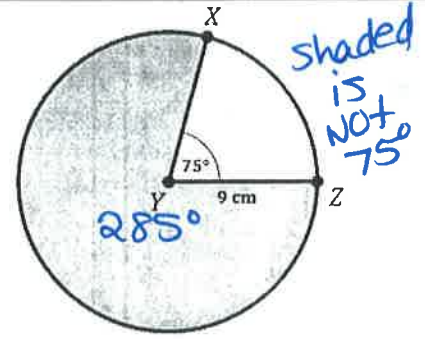 X
shaded
is
NOT
75°
75°
Y
9 cm
Z
285°